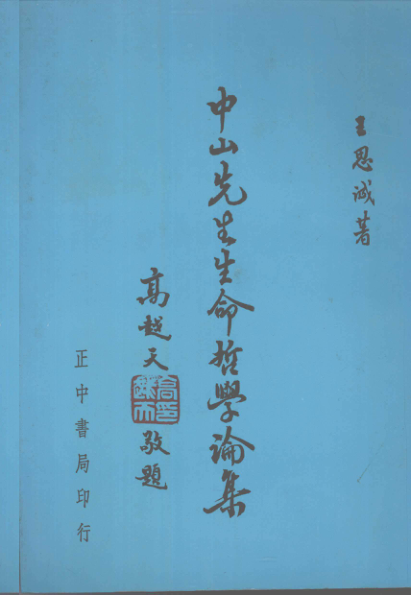 王思誠著
中山先生生命哲學論集
高越天
敬題
正中書局印行